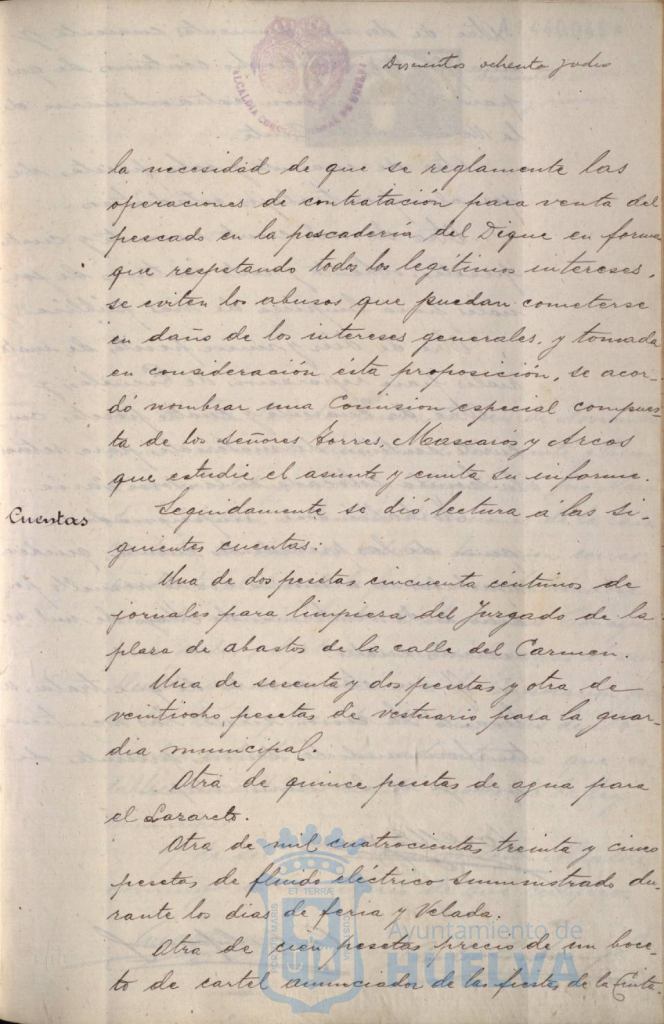 Doscientos ochenta y dos
la necesidad de que se reglamente las
operaciones de contratación para venta del
pescado en la pescadería del Dique en forma
que respetando todos los legítimos intereses,
se eviten los abusos que puedan cometerse
en daño de los intereses generales, y tomada
en consideración ésta proposición, se acor-
dó nombrar una Comision especial compues-
ta de los Señores Torres, Mascarós y Arcos
que estudie el asunto y emita su informe.
Cuentas
Seguidamente se dió lectura á las si-
guientes cuentas:
Una de dos pesetas cincuenta céntimos de
jornales para limpieza del Juzgado de la
plaza de abastos de la calle del Carmen.
Una de sesenta y dos pesetas y otra de
veintiocho pesetas de vestuario para la guar-
dia municipal.
Otra de quince pesetas de agua para
el Lazareto.
Otra de mil cuatrocientas treinta y cinco
pesetas de fluido eléctrico suministrado du-
rante los dias de feria y Velada.
Otra de cien pesetas precio de un boce-
to de cartel anunciador de las fiestas de la Cinta
Ayuntamiento de
HUELVA